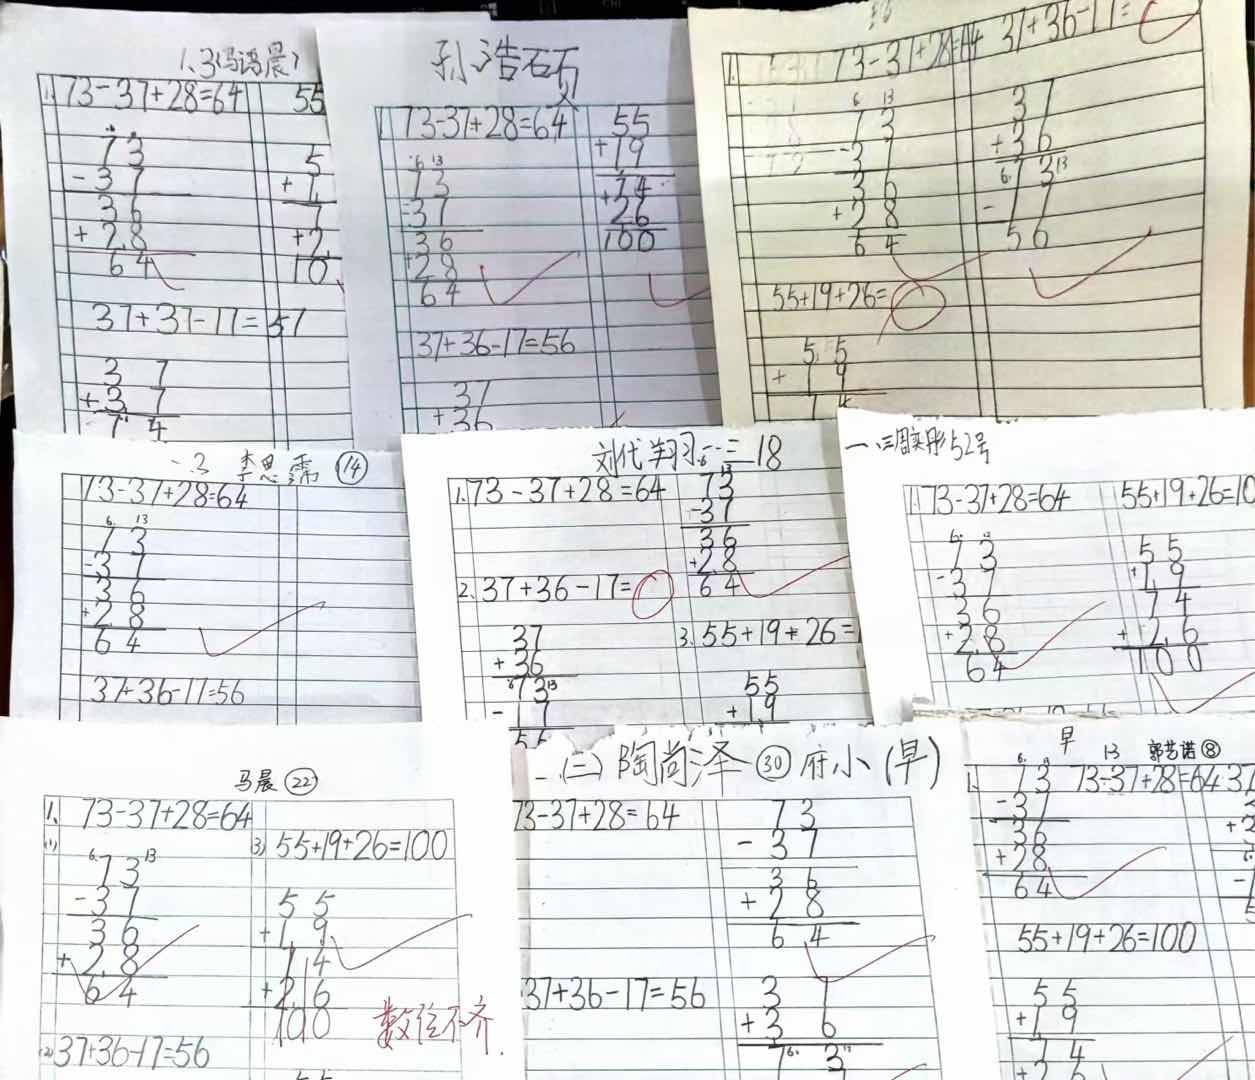 1.3(冯语晨)
73-37+28=64
55
73
-37
36
+28
64
37+37-17=57
37
+37
74
5
+1
7
+2
10
孙浩
73-37+28=64
6 13
73
-37
36
+28
64
37+36-17=56
37
+36
55
+19
74
+26
100
73-37+28=64
37+36-17=
6 13
73
-37
36
+28
64
37
+36
6 13
73
-17
56
55+19+26=
55
+19
一.3 李思霈 14
73-37+28=64
6 13
73
-37
36
+28
64
37+36-17=56
刘代翔 一.三 18
1.73-37+28=64
6 13
73
-37
36
+28
64
2.37+36-17=
37
+36
6 13
73
-17
56
3.55+19+26=
55
+19
52号
73-37+28=64
73
-37
36
+28
64
55+19+26=10
55
+19
74
+26
100
马晨 22
1、73-37+28=64
(1)
6 13
73
-37
36
+28
64
(2)37+36-17=56
3) 55+19+26=100
55
+19
74
+26
100
数位不齐
一.(三)陶尚泽 30 府小(早)
73-37+28=64
73
-37
36
+28
64
37+36-17=56
37
+36
73
早 13 郭艺诺 8
73-37+28=64
37
73
-37
36
+28
64
55+19+26=100
55
+19
74
+26